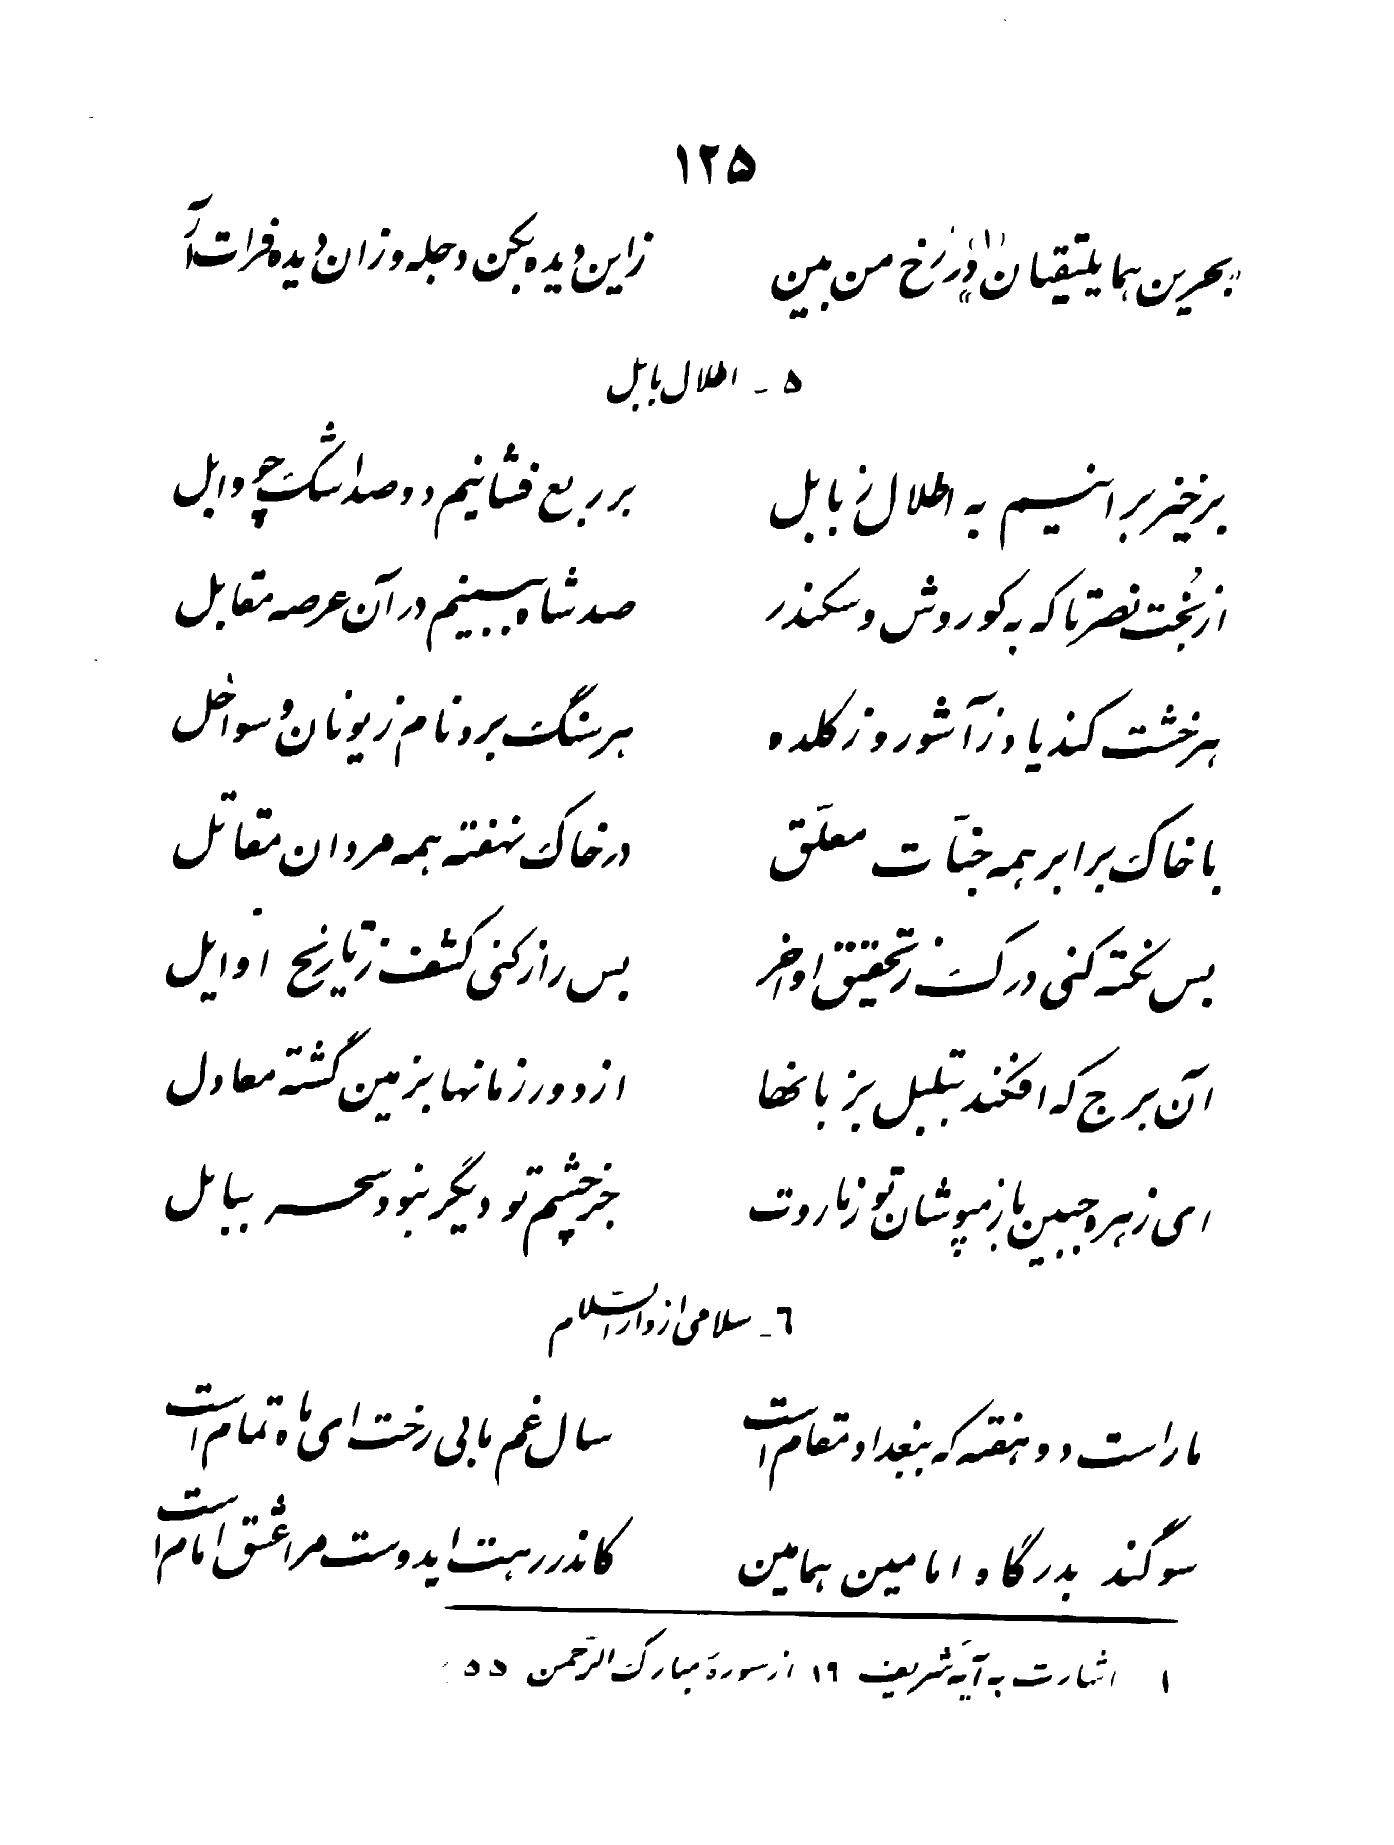 ۱۲۵
"بحرین هما یلتقیان"(۱) در رخ من بین    زاین دیده بکن دجله وزان دیده فرات آر
۵ - اطلال بابل
برخیز برانیم به اطلال ز بابل    بر ربع فشانیم دو صد اشک چو وابل
از بُخت نصر تا که به کوروش و سکندر    صد شاه ببینیم در آن عرصه مقابل
هر خشت کند یاد ز آشور و ز کلده    هر سنگ برد نام ز یونان و سواحل
با خاک برابر همه جنّات معلّق    در خاک نهفته همه مردان مقاتل
بس نکته کنی درک ز تحقیق اواخر    بس راز کنی کشف ز تاریخ اوایل
آن برج که افکند تبلبل بزبانها    از دور زمانها بزمین گشته معادل
ای زهره جبین باز مپوشان تو ز ماروت    جز چشم تو دیگر نبود سحر ببابل
۶ - سلامی از دار السّلام
ما راست دو هفته که ببغداد مقام است    سال غم ما بی رخت ای ماه تمام است
سوگند بدرگاه امامین همامین    کاندر رهت ایدوست مرا عشق امام است
۱ اشارت به آیهٔ شریف ۱۹ از سورهٔ مبارک الرّحمن ۵۵